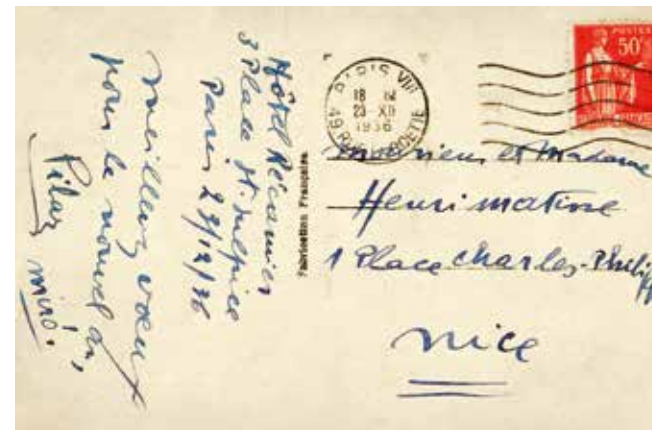 Hôtel Récamier
3 Place St Sulpice
Paris 23/12/36
meilleurs voeux
pour le nouvel an,
Pilar
miró.
Fabrication Française
PARIS VIII
18
23 XII
1936
49 R. LA BOETIE
POSTES
50c
monsieur et Madame
Henri matisse
1 Place Charles-Philipp
nice